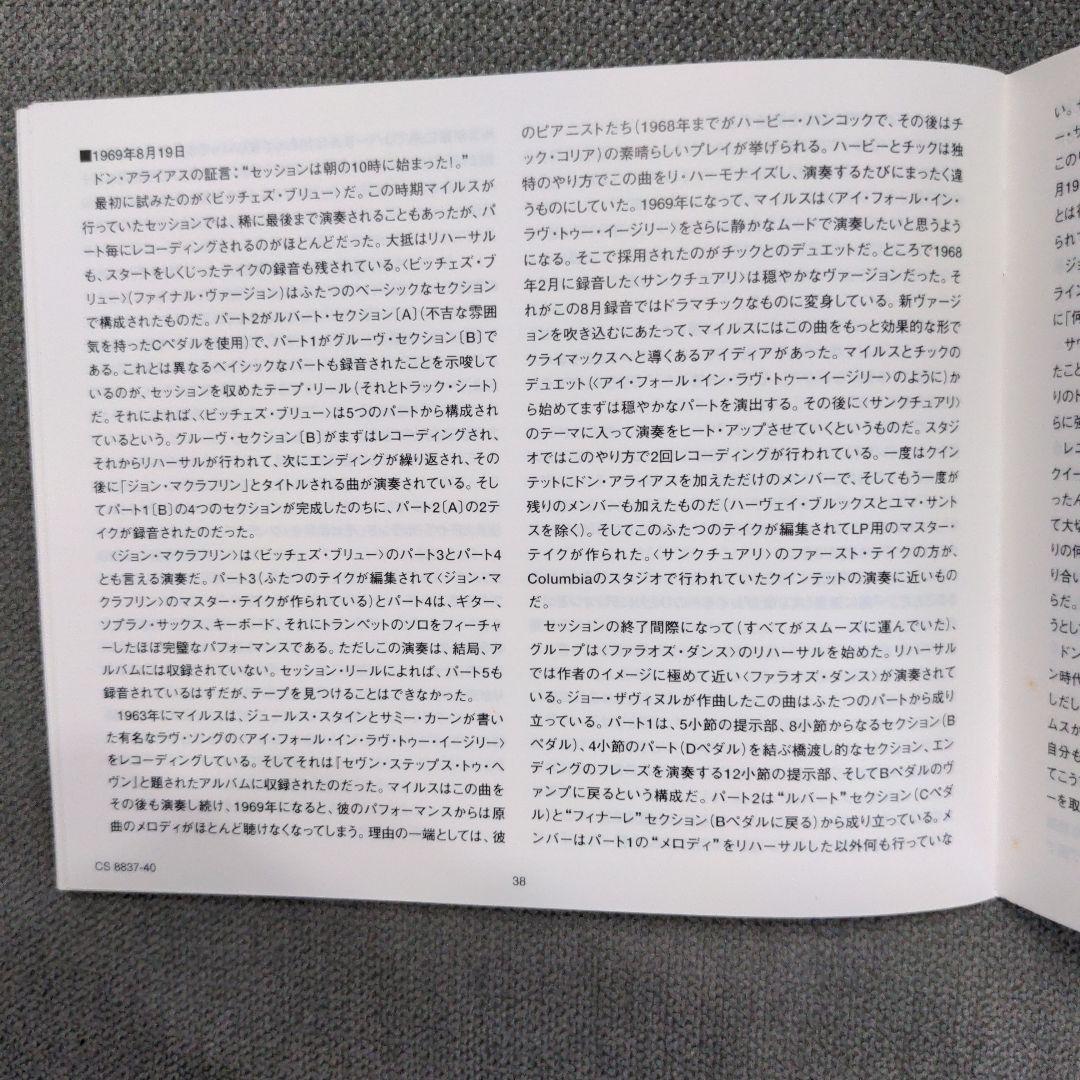 ■1969年8月19日
ドン・アライアスの証言：“セッションは朝の10時に始まった！。”
最初に試みたのが〈ビッチェズ・ブリュー〉だ。この時期マイルスが
行っていたセッションでは、稀に最後まで演奏されることもあったが、パ
ート毎にレコーディングされるのがほとんどだった。大抵はリハーサル
も、スタートをしくじったテイクの録音も残されている。〈ビッチェズ・ブ
リュー〉（ファイナル・ヴァージョン）はふたつのベーシックなセクション
で構成されたものだ。パート2がルバート・セクション〔A〕（不吉な雰囲
気を持ったCペダルを使用）で、パート1がグルーヴ・セクション〔B〕で
ある。これとは異なるベイシックなパートも録音されたことを示唆して
いるのが、セッションを収めたテープ・リール（それとトラック・シート）
だ。それによれば、〈ビッチェズ・ブリュー〉は5つのパートから構成され
ているという。グルーヴ・セクション〔B〕がまずはレコーディングされ、
それからリハーサルが行われて、次にエンディングが繰り返され、その
後に「ジョン・マクラフリン」とタイトルされる曲が演奏されている。そし
てパート1〔B〕の4つのセクションが完成したのちに、パート2〔A〕の2テ
イクが録音されたのだった。
〈ジョン・マクラフリン〉は〈ビッチェズ・ブリュー〉のパート3とパート4
とも言える演奏だ。パート3（ふたつのテイクが編集されて〈ジョン・マ
クラフリン〉のマスター・テイクが作られている）とパート4は、ギター、
ソプラノ・サックス、キーボード、それにトランペットのソロをフィーチャ
ーしたほぼ完璧なパフォーマンスである。ただしこの演奏は、結局、ア
ルバムには収録されていない。セッション・リールによれば、パート5も
録音されているはずだが、テープを見つけることはできなかった。
1963年にマイルスは、ジュールス・スタインとサミー・カーンが書い
た有名なラヴ・ソングの〈アイ・フォール・イン・ラヴ・トゥー・イージリー〉
をレコーディングしている。そしてそれは『セヴン・ステップス・トゥ・ヘ
ヴン』と題されたアルバムに収録されたのだった。マイルスはこの曲を
その後も演奏し続け、1969年になると、彼のパフォーマンスからは原
曲のメロディがほとんど聴けなくなってしまう。理由の一端としては、彼
CS 8837-40
のピアニストたち（1968年までがハービー・ハンコックで、その後はチ
ック・コリア）の素晴らしいプレイが挙げられる。ハービーとチックは独
特のやり方でこの曲をリ・ハーモナイズし、演奏するたびにまったく違
うものにしていた。1969年になって、マイルスは〈アイ・フォール・イン・
ラヴ・トゥー・イージリー〉をさらに静かなムードで演奏したいと思うよう
になる。そこで採用されたのがチックとのデュエットだ。ところで1968
年2月に録音した〈サンクチュアリ〉は穏やかなヴァージョンだった。そ
れがこの8月録音ではドラマチックなものに変身している。新ヴァージ
ョンを吹き込むにあたって、マイルスにはこの曲をもっと効果的な形で
クライマックスへと導くあるアイディアがあった。マイルスとチックの
デュエット（〈アイ・フォール・イン・ラヴ・トゥー・イージリー〉のように）か
ら始めてまずは穏やかなパートを演出する。その後に〈サンクチュアリ〉
のテーマに入って演奏をヒート・アップさせていくというものだ。スタジ
オではこのやり方で2回レコーディングが行われている。一度はクイン
テットにドン・アライアスを加えただけのメンバーで、そしてもう一度が
残りのメンバーも加えたものだ（ハーヴェイ・ブルックスとユマ・サント
スを除く）。そしてこのふたつのテイクが編集されてLP用のマスター・
テイクが作られた。〈サンクチュアリ〉のファースト・テイクの方が、
Columbiaのスタジオで行われていたクインテットの演奏に近いもの
だ。
セッションの終了間際になって（すべてがスムーズに運んでいた）、
グループは〈ファラオズ・ダンス〉のリハーサルを始めた。リハーサル
では作者のイメージに極めて近い〈ファラオズ・ダンス〉が演奏されて
いる。ジョー・ザヴィヌルが作曲したこの曲はふたつのパートから成り
立っている。パート1は、5小節の提示部、8小節からなるセクション（B
ペダル）、4小節のパート（Dペダル）を結ぶ橋渡し的なセクション、エン
ディングのフレーズを演奏する12小節の提示部、そしてBペダルのヴ
ァンプに戻るという構成だ。パート2は“ルバート”セクション（Cペダ
ル）と“フィナーレ”セクション（Bペダルに戻る）から成り立っている。メ
ンバーはパート1の“メロディ”をリハーサルした以外何も行っていな
38